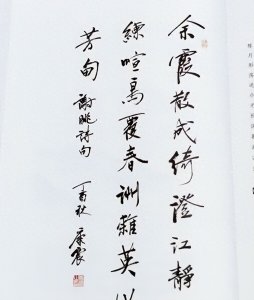 余霞散成綺澄江靜
練喧鳥覆春洲雜英
芳甸 謝朓詩句
丁酉秋 康震